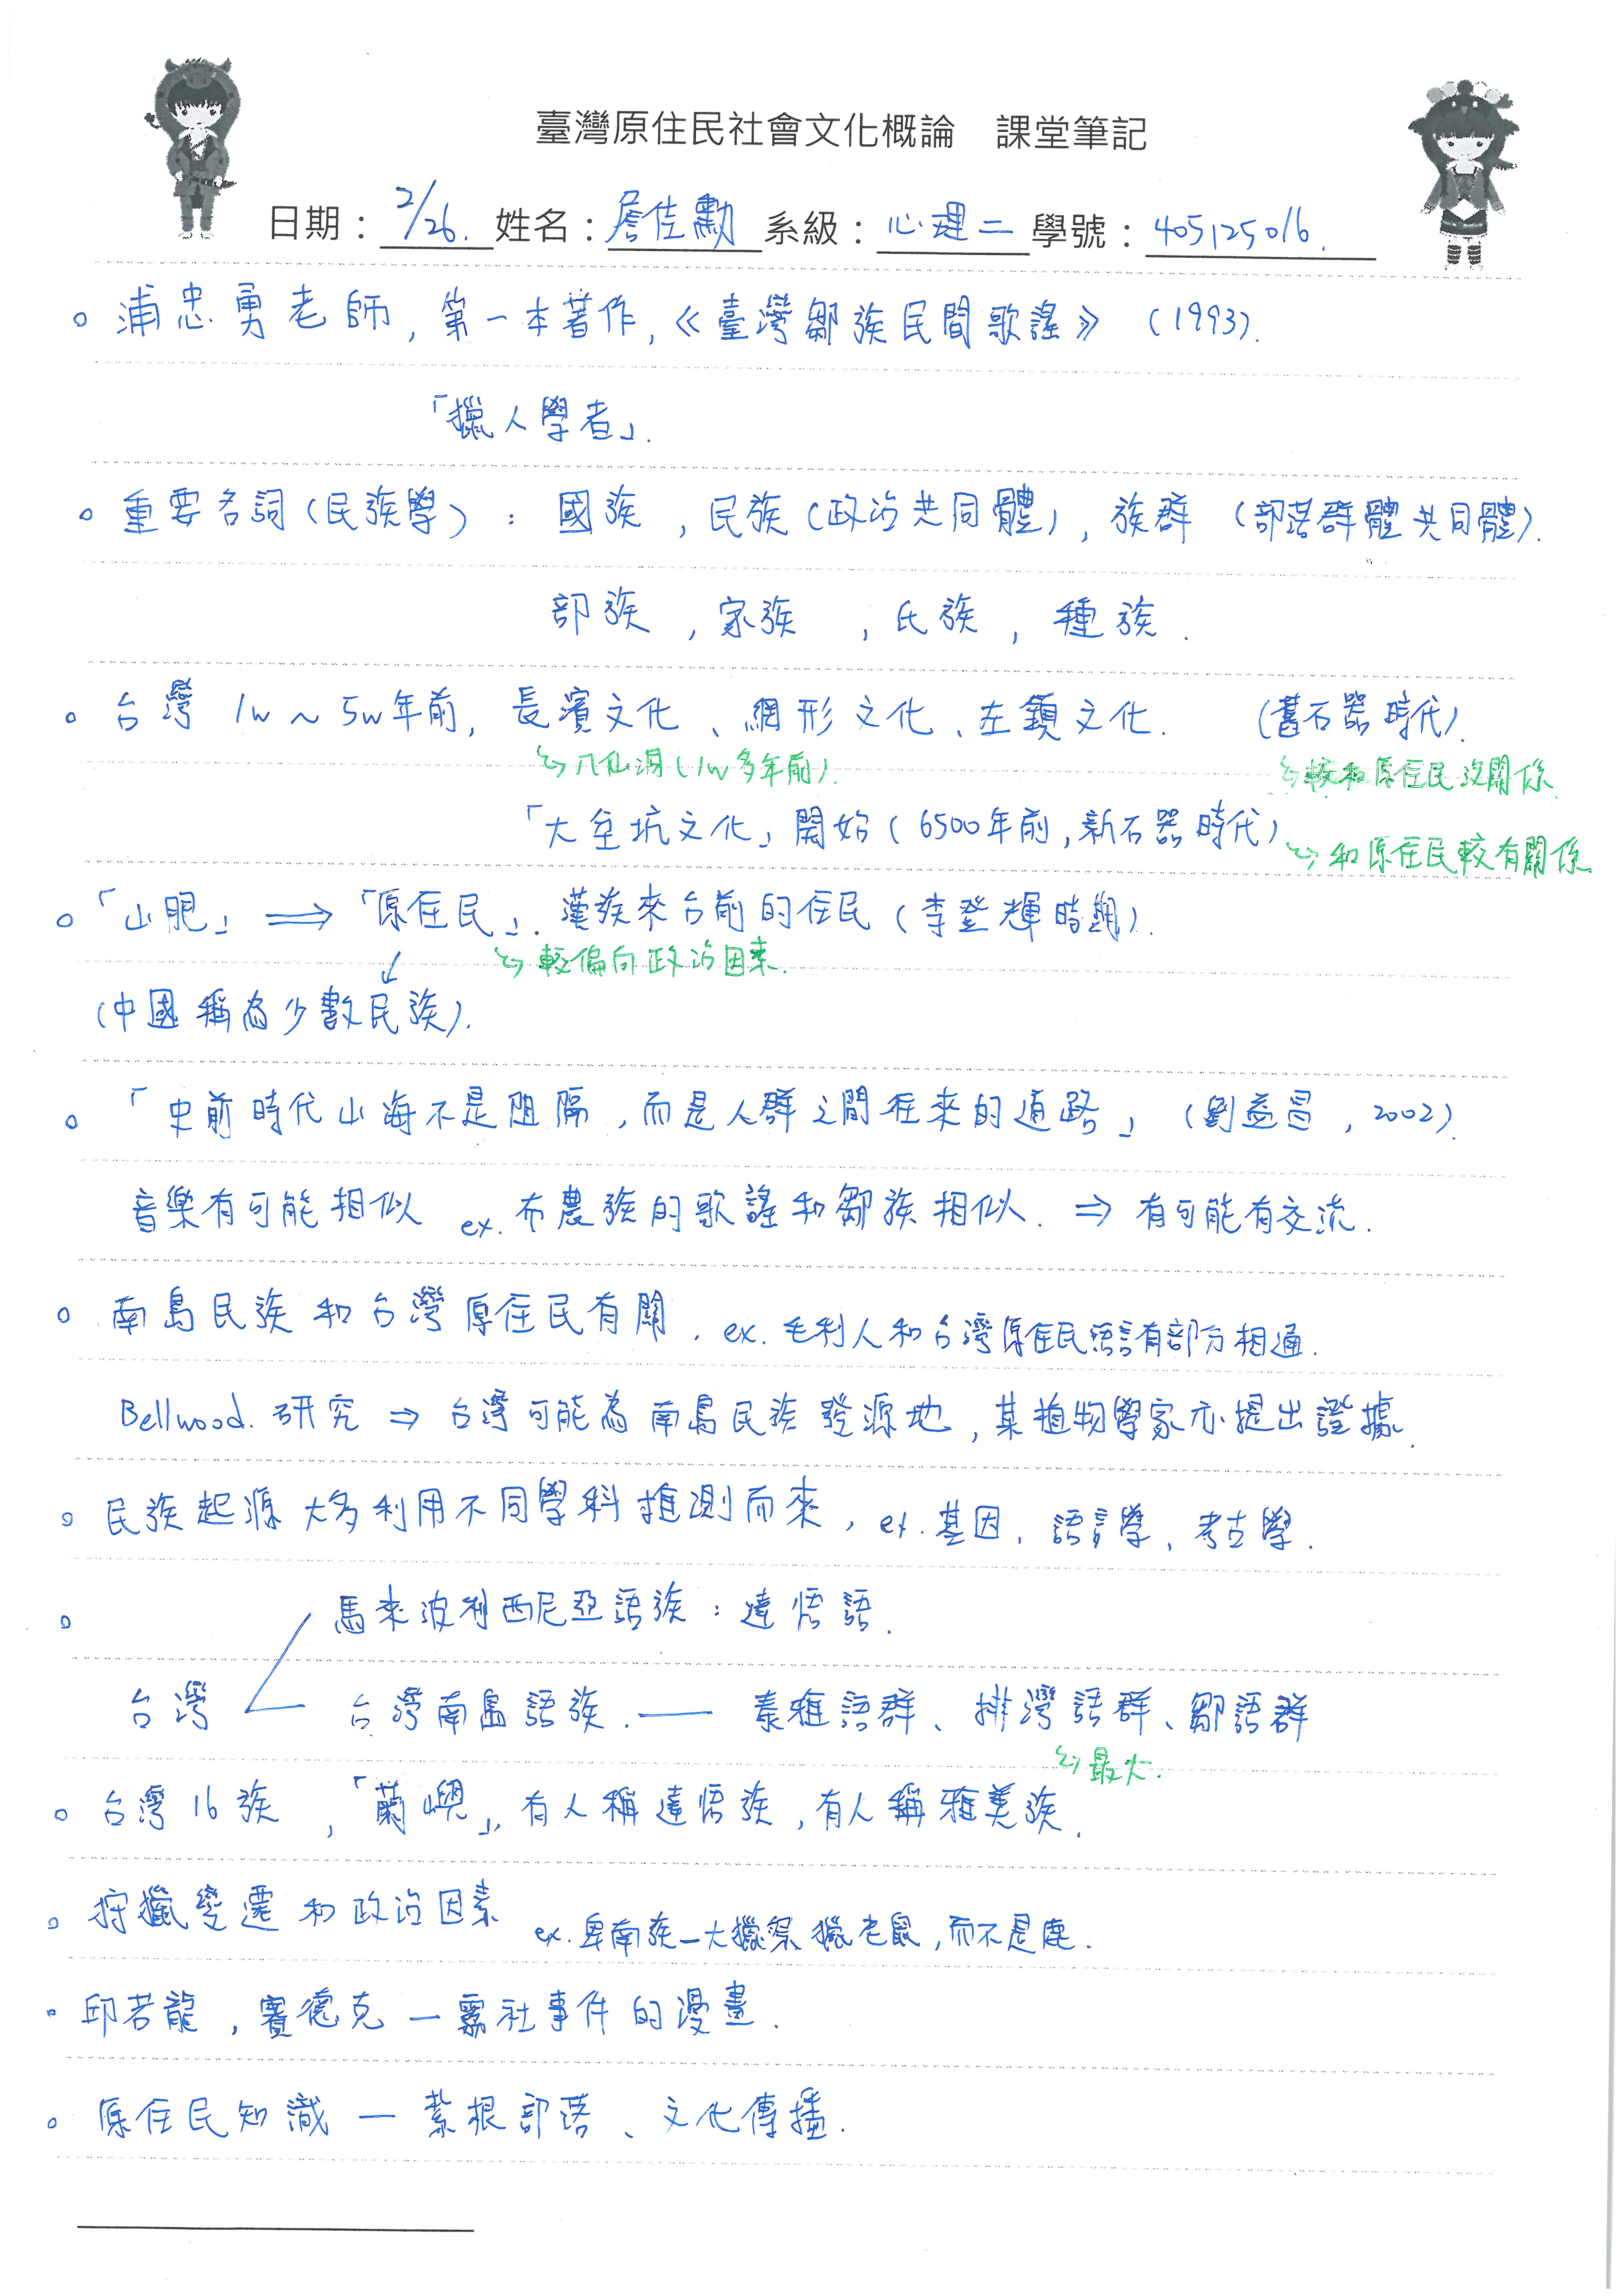 臺灣原住民社會文化概論　課堂筆記
日期：2/26. 姓名：詹佳勳 系級：心理二 學號：405125016.
。浦忠勇老師, 第一本著作,《臺灣鄒族民間歌謠》(1993).
「獵人學者」.
。重要名詞(民族學)：國族, 民族(政治共同體), 族群(部落群體共同體).
部族, 家族, 氏族, 種族.
。台灣 1w～5w年前, 長濱文化、網形文化、左鎮文化. (舊石器時代).
↳八仙洞(1w多年前). ↳較和原住民沒關係.
「大坌坑文化」開始(6500年前,新石器時代)
↳和原住民較有關係.
。「山胞」⇒「原住民」. 漢族來台前的住民(李登輝時期).
↙ ↳較偏向政治因素.
(中國稱為少數民族).
。「史前時代山海不是阻隔, 而是人群之間往來的道路」(劉益昌, 2002).
音樂有可能相似 ex. 布農族的歌謠和鄒族相似. ⇒ 有可能有交流.
。南島民族和台灣原住民有關. ex. 毛利人和台灣原住民語言有部分相通.
Bellwood. 研究 ⇒ 台灣可能為南島民族發源地, 某植物學家亦提出證據.
。民族起源大多利用不同學科推測而來, ex. 基因, 語言學, 考古學.
。 馬來波利西尼亞語族：達悟語.
台灣 台灣南島語族. — 泰雅語群、排灣語群、鄒語群
↳最大.
。台灣16族, 「蘭嶼」, 有人稱達悟族, 有人稱雅美族.
。狩獵變遷和政治因素 ex. 卑南族—大獵祭獵老鼠, 而不是鹿.
。邱若龍, 賽德克 — 霧社事件的漫畫.
。原住民知識 — 紮根部落、文化傳播.